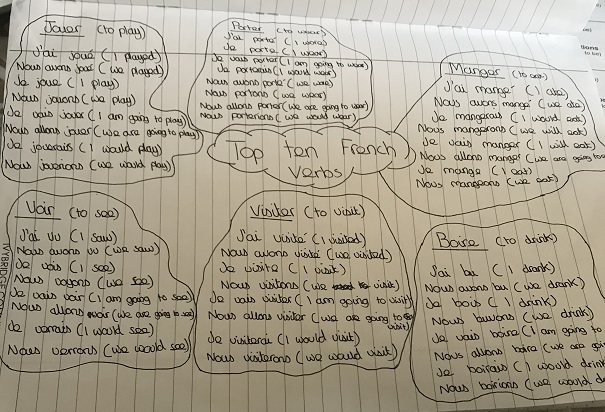 Jouer (to play)
J'ai joué (I played)
Nous avons joué (we played)
Je joue (I play)
Nous jouons (we play)
Je vais jouer (I am going to play)
Nous allons jouer (we are going to play)
Je jouerais (I would play)
Nous jouerions (we would play)
Porter (to wear)
J'ai porté (I wore)
Je porte (I wear)
Je vais porter (I am going to wear)
Je porterais (I would wear)
Nous avons porté (we wore)
Nous portons (we wear)
Nous allons porter (we are going to wear)
Nous porterions (we would wear)
Manger (to eat)
J'ai mangé (I ate)
Nous avons mangé (we ate)
Je mangerais (I would eat)
Nous mangerons (we will eat)
Je vais manger (I will eat)
Nous allons manger (we are going to
Je mange (I eat)
Nous mangeons (we eat)
Top ten French
Verbs
Voir (to see)
J'ai vu (I saw)
Nous avons vu (we saw)
Je vois (I see)
Nous voyons (we see)
Je vais voir (I am going to see)
Nous allons voir (we are going to see)
Je verrais (I would see)
Nous verrons (we would see)
Visiter (to visit)
J'ai visité (I visited)
Nous avons visité (we visited)
Je visite (I visit)
Nous visitons (we visit)
Je vais visiter (I am going to visit)
Nous allons visiter (we are going to
visit)
Je visiterai (I would visit)
Nous visiterons (we would visit)
Boire (to drink)
J'ai bu (I drank)
Nous avons bu (we drank)
Je bois (I drink)
Nous buvons (we drink)
Je vais boire (I am going to
Nous allons boire (we are goi
Je boirais (I would drink
Nous boirions (we would d
IVYBRIDGE